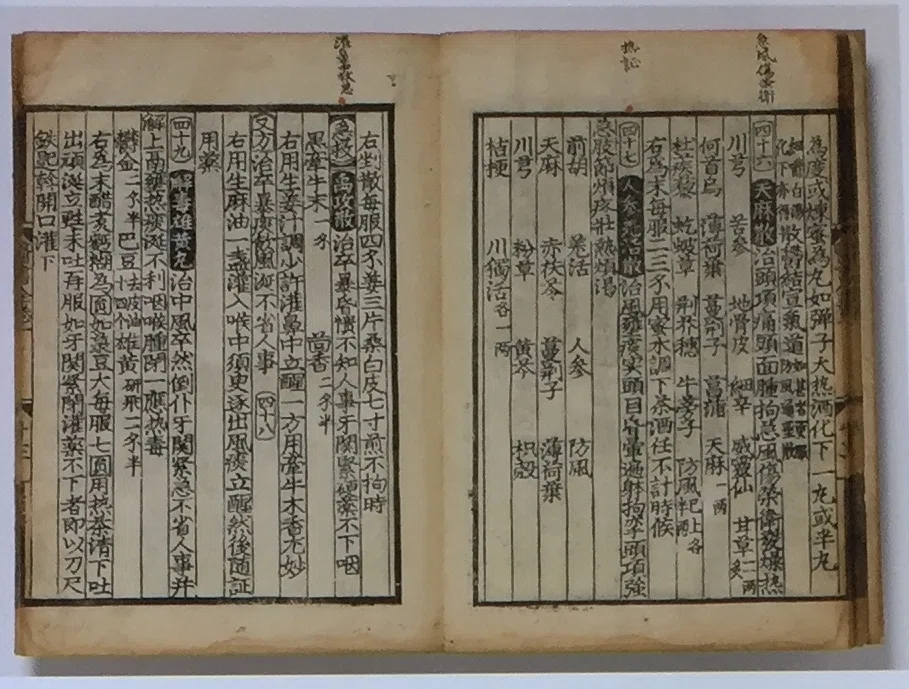 急風傷榮衛
热証
為度或煉蜜為丸如弾子大热酒化下一丸或半丸
四十六 天麻散 治頭項痛頭面腫拘急風傷榮衛發燥热
川芎 苦参 地骨皮 細辛 威靈仙 甘草一两炙
何首烏 薄荷葉 蔓荊子 菖蒲 天麻一两
虼蚾草 荊芥穗 牛蒡子 防風已上各半两
右為末每服二三不用蜜水調下茶酒任不計時候
四十七 人参羗活散 治風壅痰实頭目昏暈遍射拘孿頭項強
急肢節煩疼壮熱煩渴
前胡 羗活 人参 防風
天麻 赤茯苓 蔓荊子 薄荷葉
川芎 粉草 黄芩 枳殻
桔梗 川獨活各一两
灌鼻救急
右剉散每服四不姜三片桑白皮七寸煎不拘時
急救 為攻散 治卒暴昏憒不知人事牙関緊硬藥不下咽
黒牽牛末一分 茴香二不半
右用生姜汁調少許灌鼻中立醒一方用牽牛木香尤妙
又方治卒暴痰飲風涎不省人事 四十八
右用生麻油一盞灌入喉中須臾逐出風痰立醒然後随証
用藥
四十九 解毒雄黄丸 治中風卒然倒仆牙関緊急不省人事并
解上膈壅热痰涎不利咽喉腫閉一應热毒
欝金二不半 巴豆去皮油十四个 雄黄研飛二不半
右為末醋煮麪糊為圎如菉豆大每服七圎用热茶清下吐
出頑涎立甦未吐再服如牙関緊閉灌藥不下者即以刀尺
鉄匙斡開口灌下